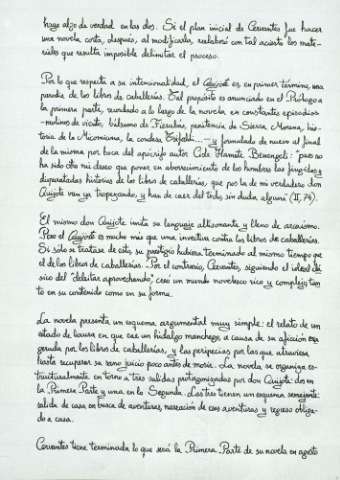 haya algo de verdad en las dos. Si el plan inicial de Cervantes fue hacer
una novela corta, después, al modificarla, reelaboró con tal acierto los mate-
riales que resulta imposible delimitar el proceso.
Por lo que respecta a su intencionalidad, el Quijote es en primer término, una
parodia de los libros de caballerías. Tal propósito es anunciado en el Prólogo a
la primera parte, recordado a lo largo de la novela en constantes episodios
-molinos de viento, bálsamo de Fierabrás, penitencia de Sierra Morena, his-
toria de la Micomicona, la condesa Trifaldi...- y formulado de nuevo al final
de la misma por boca del apócrifo autor Cide Hamete Benengeli: "pues no
ha sido otro mi deseo que poner en aborrecimiento de los hombres las fingidas y
disparatadas historias de los libros de caballerías, que por la de mi verdadero don
Quijote van ya tropezando, y han de caer del todo, sin duda alguna" (II, 74).
El mismo don Quijote imita su lenguaje altisonante y lleno de arcaísmo.
Pero el Quijote es mucho más que una invectiva contra los libros de caballerías.
Si sólo se tratase de esto, su prestigio hubiera terminado al mismo tiempo que
el de los libros de caballerías. Por el contrario, Cervantes, siguiendo el ideal clá-
sico del "deleitar aprovechando", creó un mundo novelesco rico y complejo tan-
to en su contenido como en su forma.
La novela presenta un esquema argumental muy simple: el relato de un
estado de locura en que cae un hidalgo manchego, a causa de su afición exa-
gerada por los libros de caballerías, y las peripecias por las que atraviesa
hasta recuperar su sano juicio poco antes de morir. La novela se organiza es-
tructuralmente en torno a tres salidas protagonizadas por don Quijote: dos en
la Primera Parte y una en la Segunda. Las tres tienen un esquema semejante:
salida de casa en busca de aventuras, narración de esas aventuras y regreso obliga-
do a casa.
Cervantes tiene terminada lo que será la Primera Parte de su novela en agosto